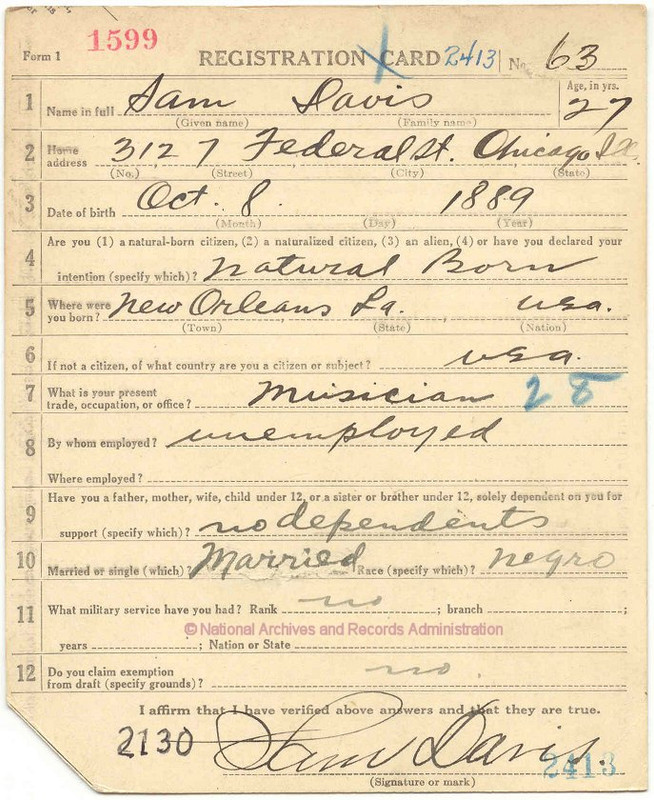 Form 1 1599 REGISTRATION CARD 2413 No. 63
1 Name in full Sam Davis Age, in yrs. 27
(Given name) (Family name)
2 Home address 3127 Federal St. Chicago Ill.
(No.) (Street) (City) (State)
3 Date of birth Oct. 8 1889
(Month) (Day) (Year)
4 Are you (1) a natural-born citizen, (2) a naturalized citizen, (3) an alien, (4) or have you declared your
intention (specify which)? Natural Born
5 Where were you born? New Orleans La. USA.
(Town) (State) (Nation)
6 If not a citizen, of what country are you a citizen or subject? USA.
7 What is your present trade, occupation, or office? Musician 28
8 By whom employed? unemployed
Where employed?
9 Have you a father, mother, wife, child under 12, or a sister or brother under 12, solely dependent on you for
support (specify which)? no dependents
10 Married or single (which)? Married Race (specify which)? negro
11 What military service have you had? Rank no ; branch ;
© National Archives and Records Administration
years ; Nation or State
12 Do you claim exemption from draft (specify grounds)? no.
I affirm that I have verified above answers and that they are true.
2130 Sam Davis. 2413
(Signature or mark)